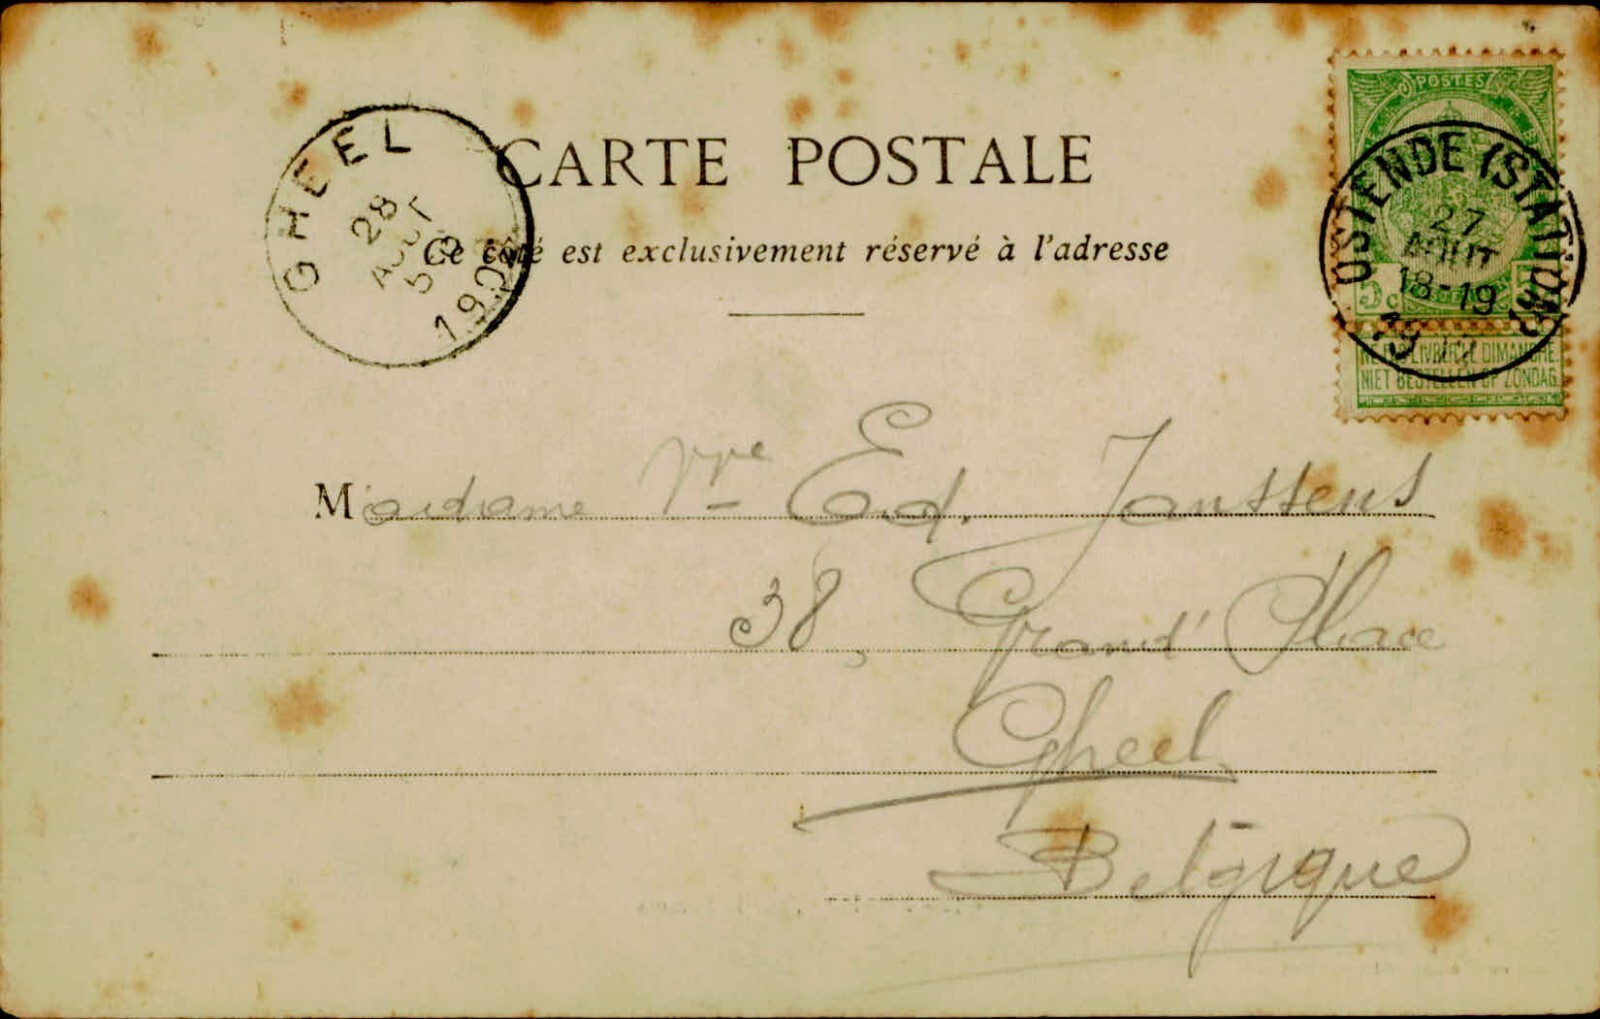 POSTES
GHEEL
28
AOUT
190
CARTE POSTALE
Ce côté est exclusivement réservé à l'adresse
OSTENDE (STATION)
27
AOUT
18-19
19
5 c
NE PAS LIVRER LE DIMANCHE.
NIET BESTELLEN OP ZONDAG.
Madame Ed. Janssens
38, Grand' Place
Gheel
Belgique